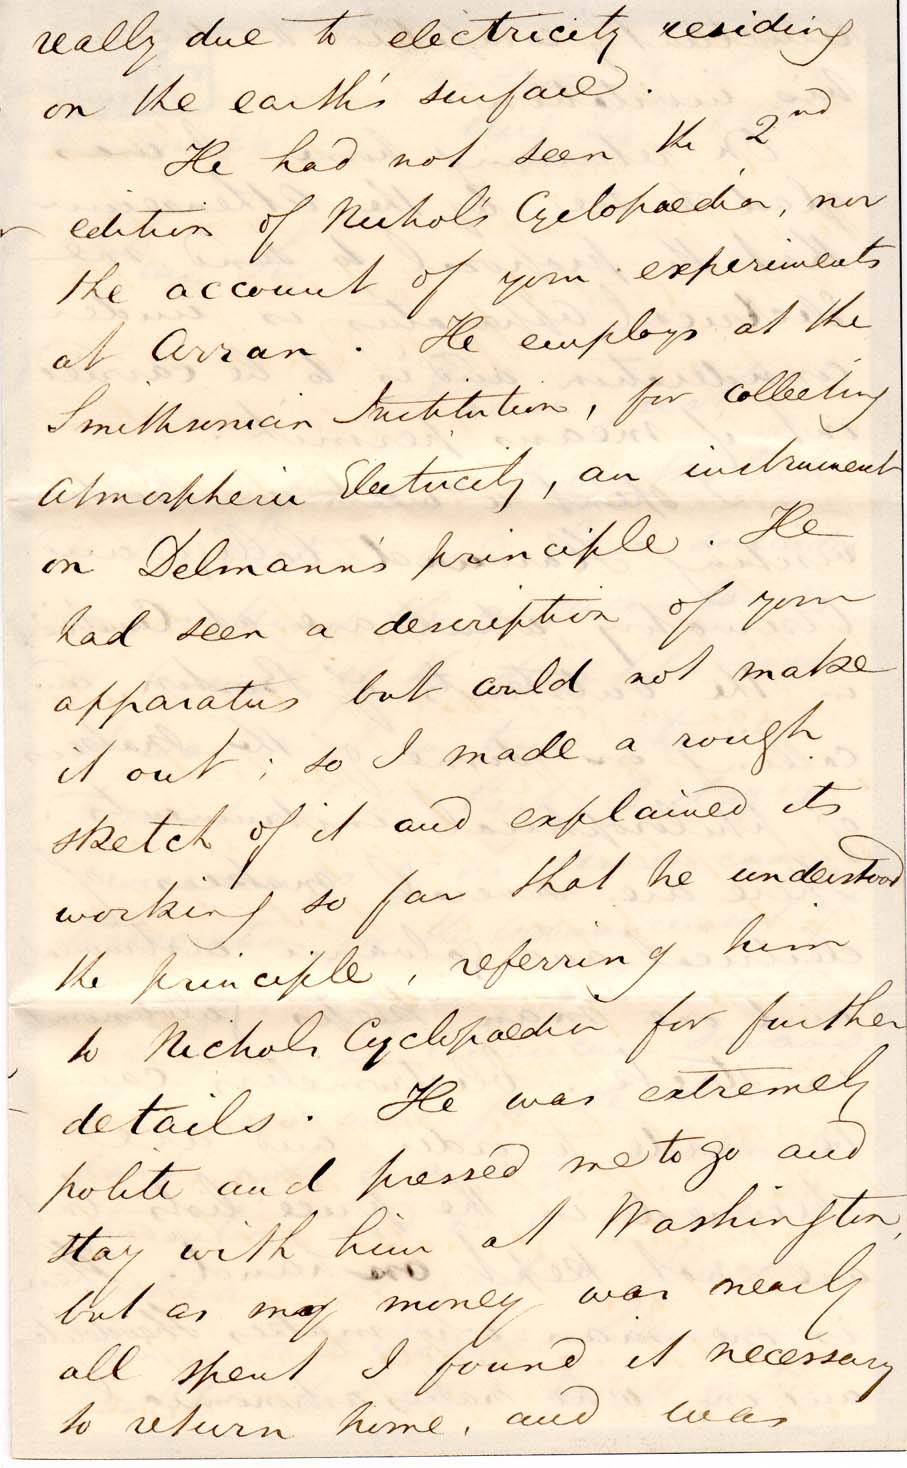 really due to electricity residing
on the earth's surface.
He had not seen the 2nd
edition of Nichol's Cyclopaedia, nor
the account of your experiments
at Arran. He employs at the
Smithsonian Institution, for collecting
Atmospheric Electricity, an instrument
on Delmann's principle. He
had seen a description of your
apparatus but could not make
it out; so I made a rough
sketch of it and explained its
working so far that he understood
the principle, referring him
to Nichols Cyclopaedia for further
details. He was extremely
polite and pressed me to go and
stay with him at Washington,
but as my money was nearly
all spent I found it necessary
to return home, and was